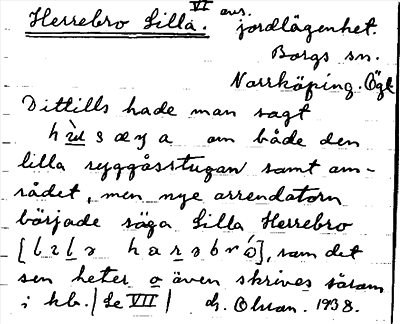 Herrebro Lilla. VI avs. jordlägenhet.
Borgs sn.
Norrköping. Ögl
Dittills hade man sagt
om både den
lilla ryggåsstugan samt om-
rådet, men nye arrendatorn
började säga Lilla Herrebro
[lila harəbró], som det
sen heter o även skrives såsom
i kb. | Se VII | dr. Olsson. 1938.